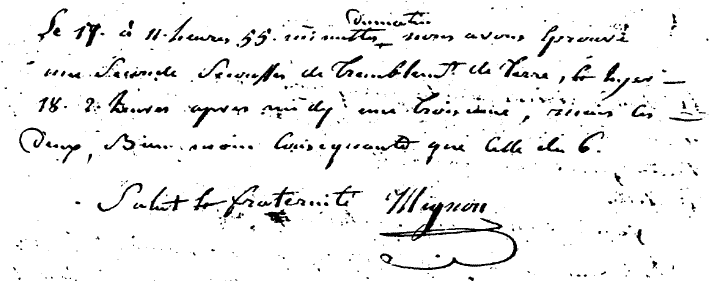 du matin
Le 17. à 11 heures 55 minuttes nous avons Eprouvé
une Seconde Secousse de tremblemt. de terre, et hyer
18. 2 heures apres midy une troisieme, mais ces
Deux, Bien moin Consequante que Celle du 6.
Salut et fraternité Mignon